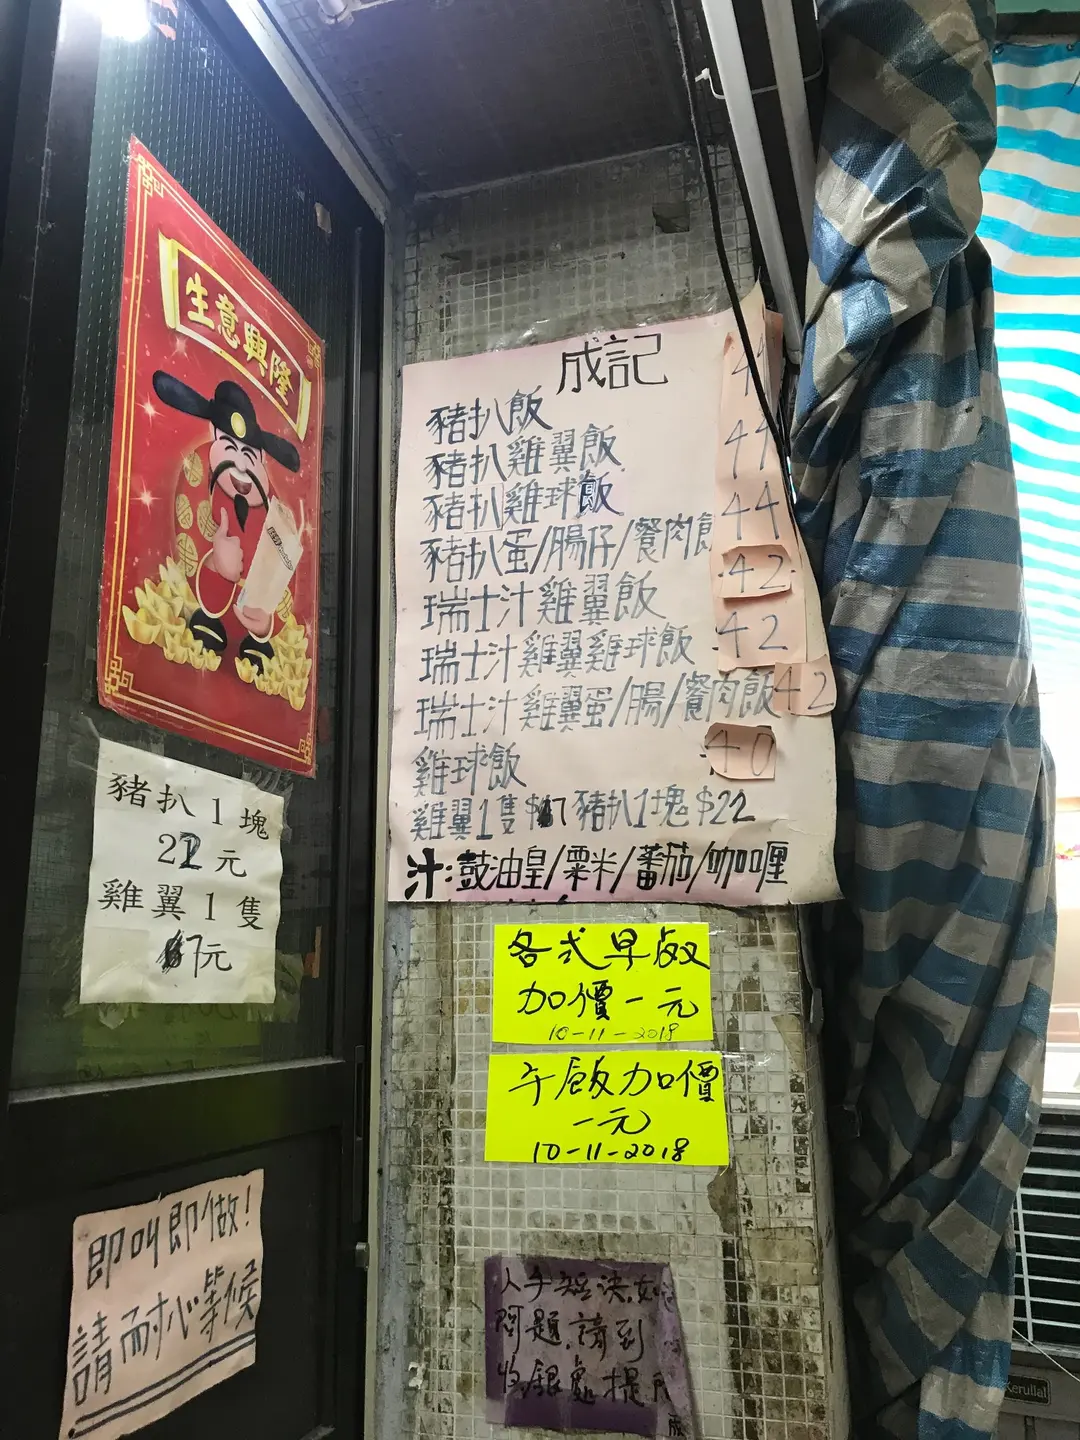 生意興隆
成記
豬扒飯 44
豬扒雞翼飯 44
豬扒雞球飯 44
豬扒蛋/腸仔/餐肉飯 42
瑞士汁雞翼飯 42
瑞士汁雞翼雞球飯 42
瑞士汁雞翼蛋/腸/餐肉飯
雞球飯 40
雞翼1隻$7 豬扒1塊$22
汁:豉油皇/粟米/蕃茄/咖喱
豬扒1塊
22元
雞翼1隻
7元
各式早飯
加價一元
10-11-2018
午飯加價
一元
10-11-2018
即叫即做!
請耐心等候
人手短決,如
問題,請到
收銀處提
Kerullal